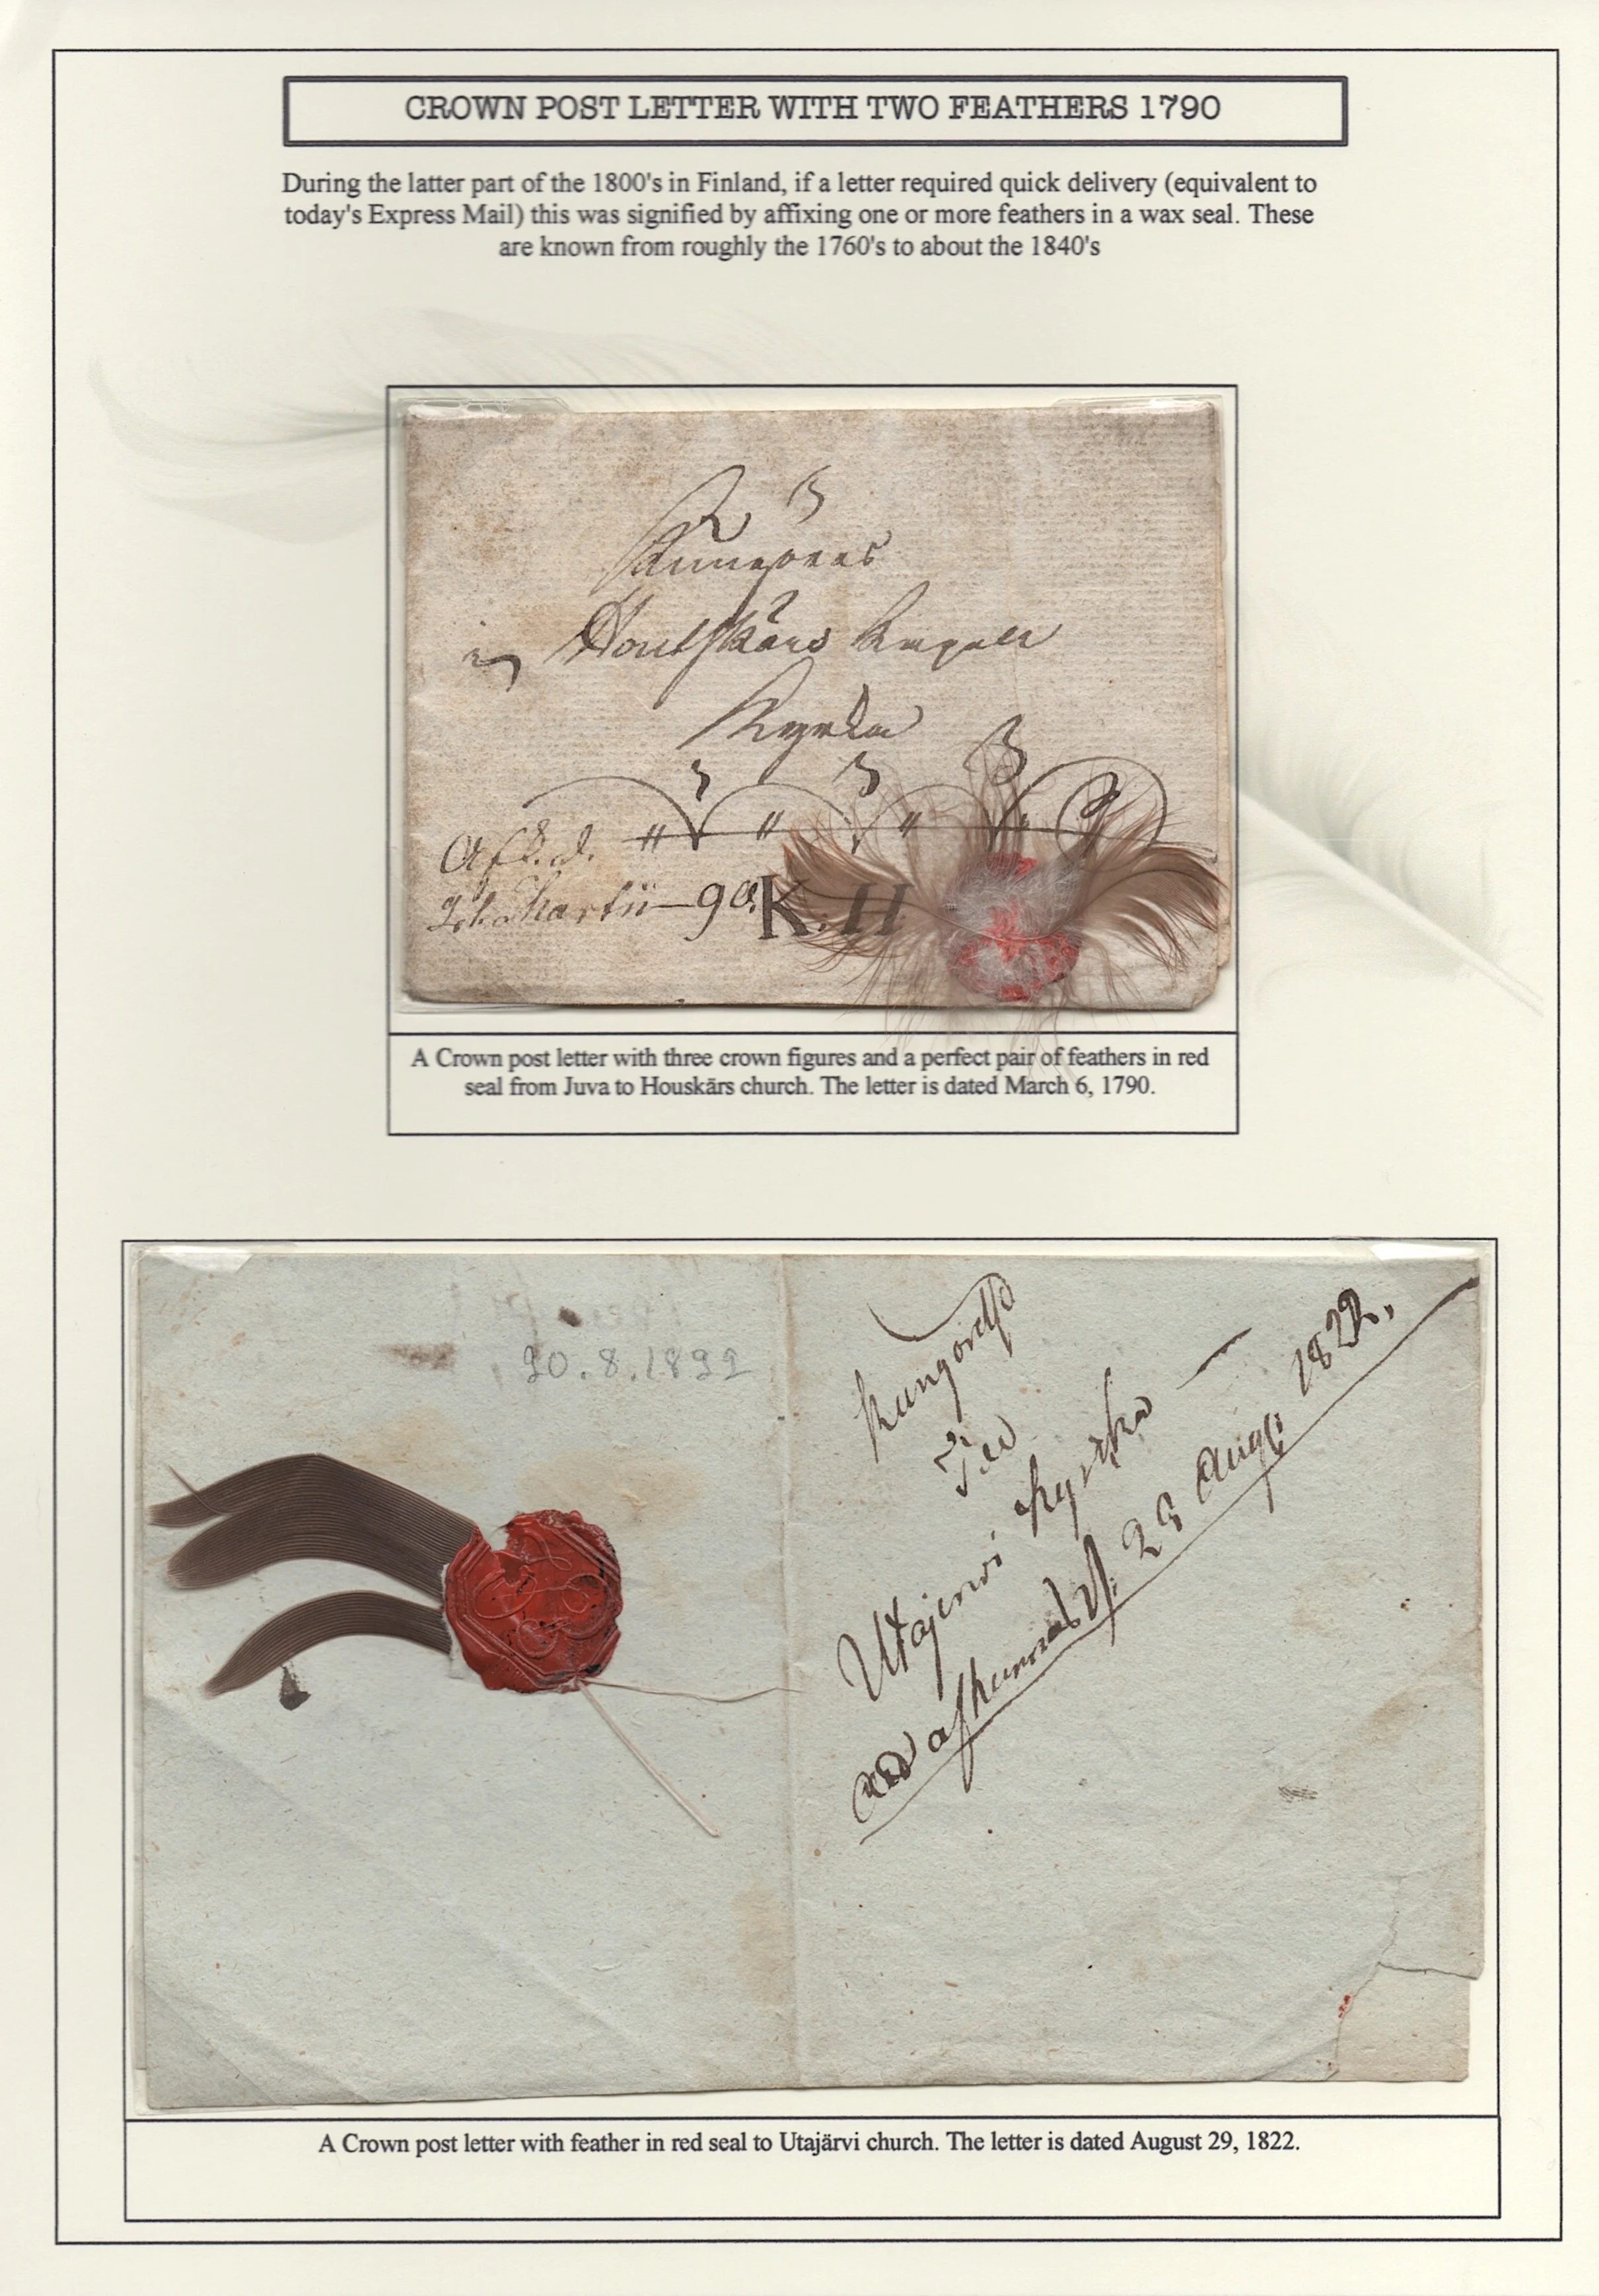 CROWN POST LETTER WITH TWO FEATHERS 1790
During the latter part of the 1800's in Finland, if a letter required quick delivery (equivalent to
today's Express Mail) this was signified by affixing one or more feathers in a wax seal. These
are known from roughly the 1760's to about the 1840's
Houtskärs
Kyrka
90. K. H
A Crown post letter with three crown figures and a perfect pair of feathers in red
seal from Juva to Houskärs church. The letter is dated March 6, 1790.
20.8.1822
Utajervi Kyrka
29 Aug: 1822.
A Crown post letter with feather in red seal to Utajärvi church. The letter is dated August 29, 1822.